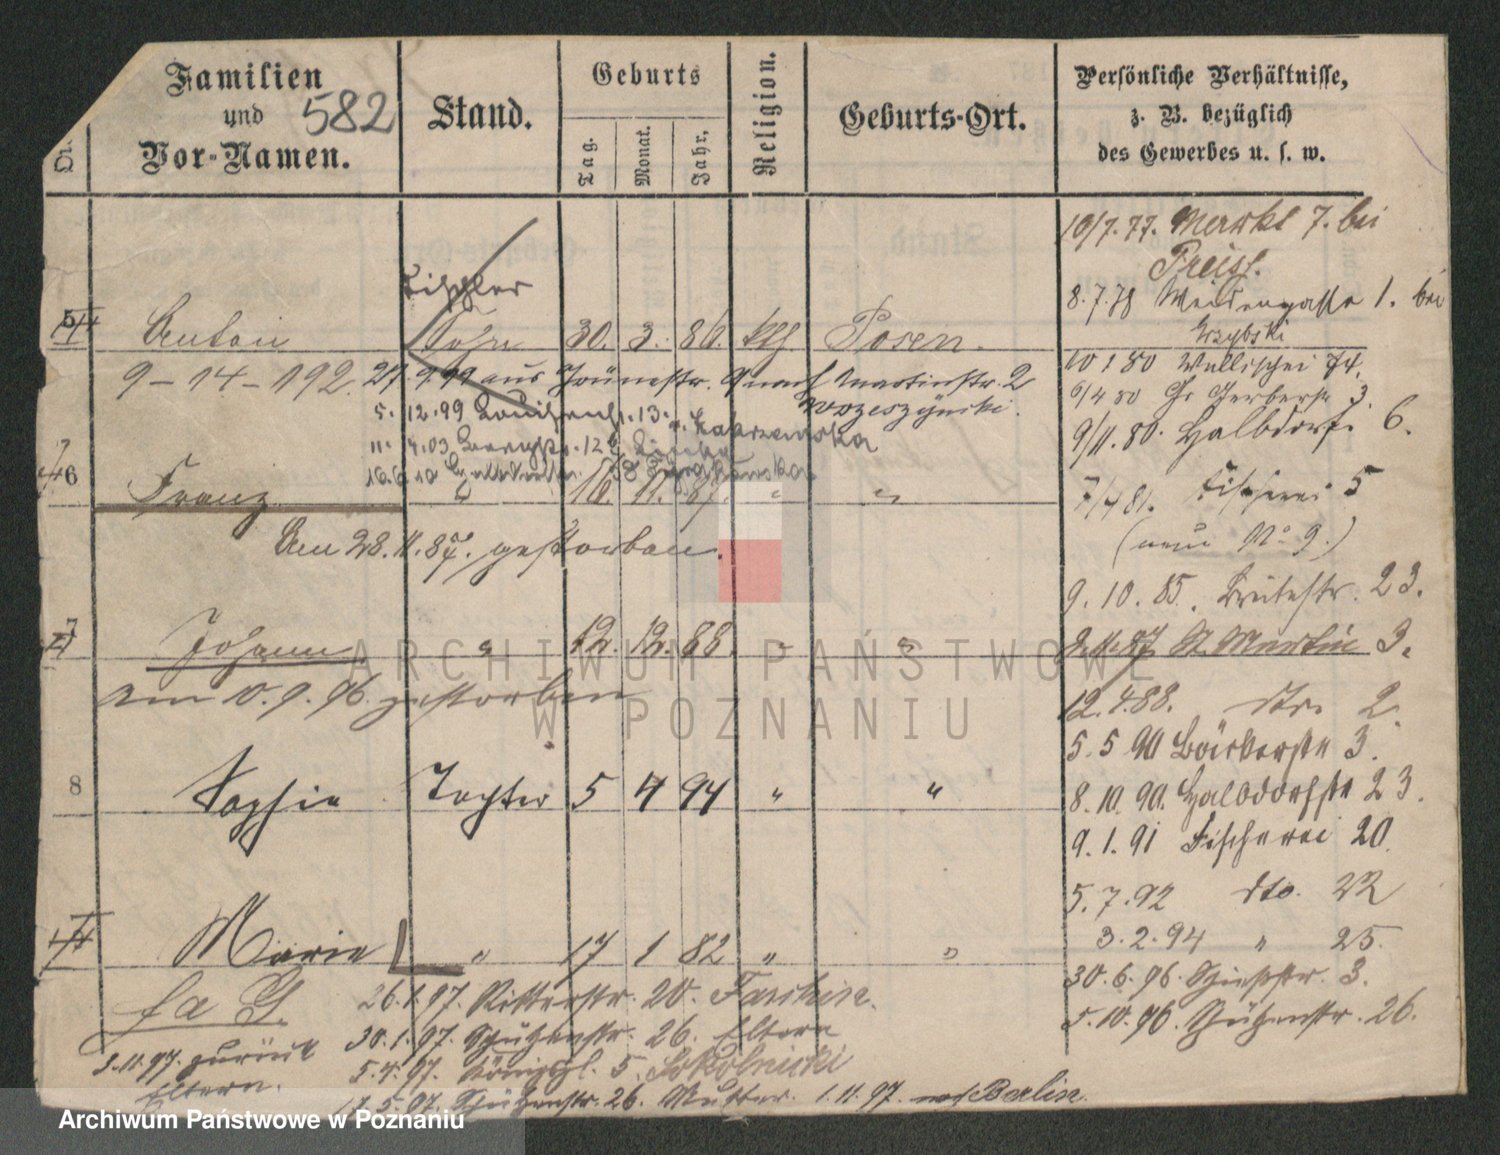 Familien
und
Vor-Namen.
582
Stand.
Geburts
Tag.
Monat.
Jahr.
Religion.
Geburts-Ort.
Persönliche Verhältnisse,
z. B. bezüglich
des Gewerbes u. s. w.
10/7.77. Markt 7. bei
8.7.78 Waisengasse 1. bei
Grzybski
10 1 80 Wallischei 74.
6/4 80 Gr. Gerberstr 3.
9/11.80. Halbdorf 6.
7/4 81. Fischerei 5
(neue No 9.)
9.10.85. Breitestr. 23.
2.11.87 St. Martin 3.
12.4.88. dto. 2.
5.5 90 Bäckerstr 3.
8.10.90. Halbdorfstr 23.
9.1.91 Fischerei 20.
5.7.92 dto. 22
3.2.94 " 25.
30.6.96. Schießstr. 3.
5.10.96. Schützenstr. 26.
Tischler
5 Anton Sohn 30. 3. 86. kth Posen.
9-14-192. 27.9.99 aus Grünestr. 9 nach Martinstr. 2
5.12.99 13.
11.4.03 Bergstr. 12
6 Franz " 16. 11. 87. " "
Am 28.11.87. gestorben.
7 Johann " 12. 12. 88. " "
am 10.9.96. gestorben
8 Sophie Tochter 5 4 94 " "
Marie " 17 1 82 " "
fa G.
26.1.97. Ritterstr. 20.
30.1.97. Schützenstr. 26. Eltern
5.4.97. Königspl. 5. Sokolnicki
17.5.97. Schützenstr. 26. Mutter. 1.11.97. nach Berlin
9.11.97. zurück
Eltern.
ARCHIWUM PAŃSTWOWE
W POZNANIU
Archiwum Państwowe w Poznaniu